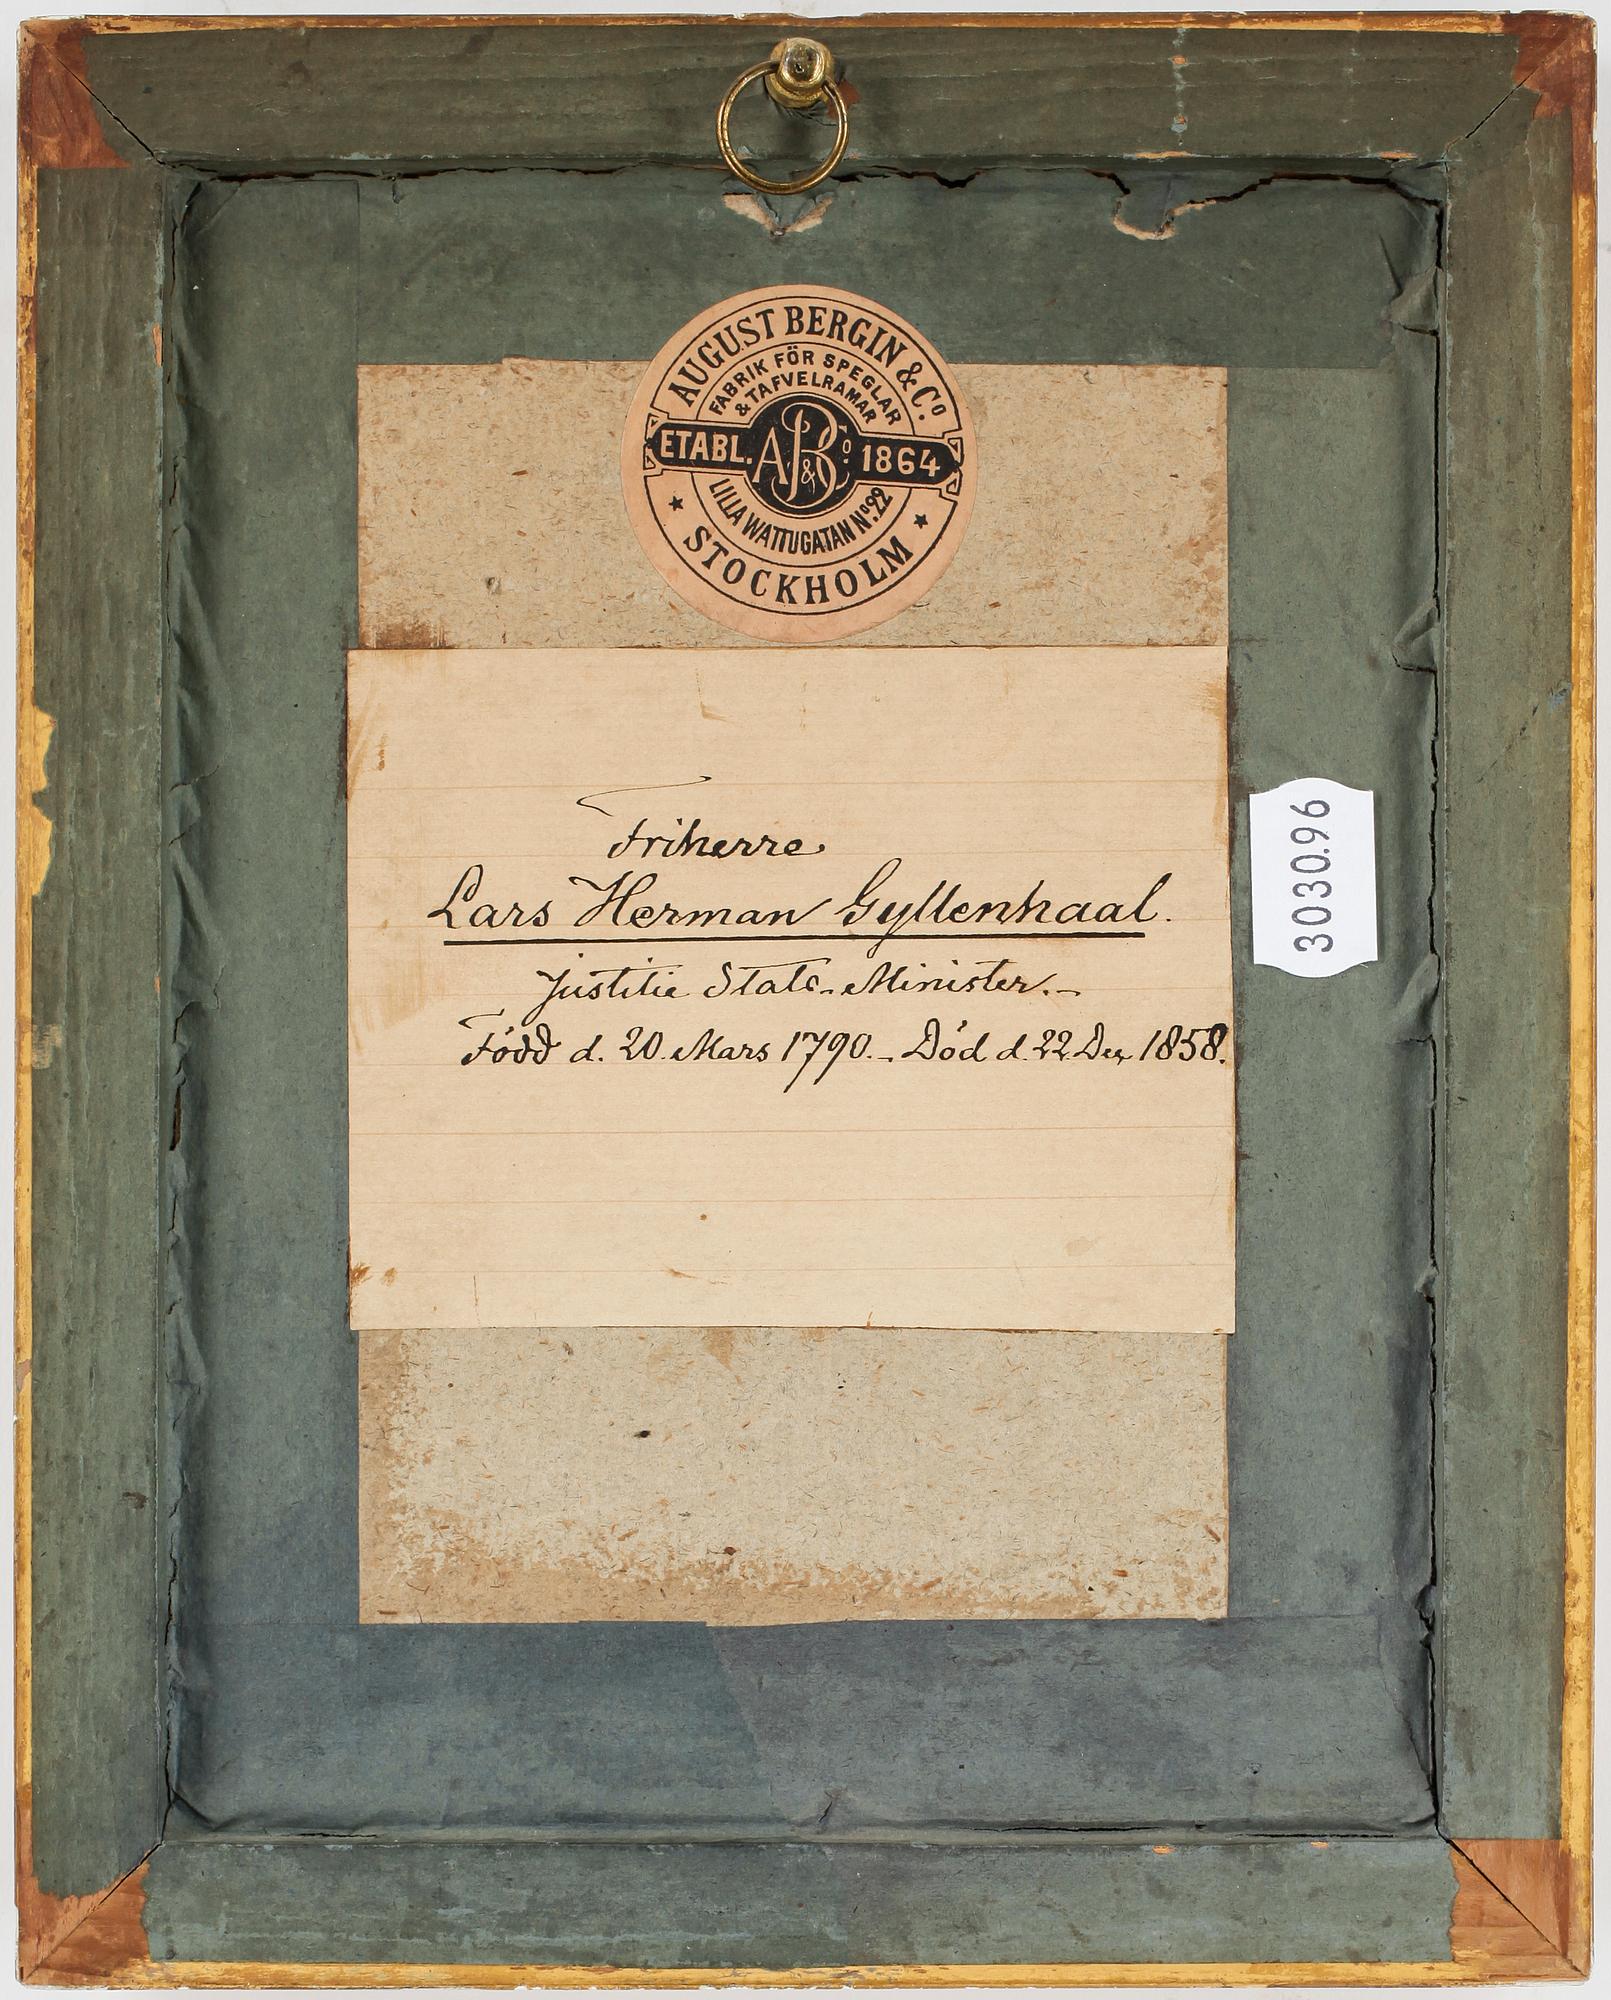 AUGUST BERGIN & Cº
FABRIK FÖR SPEGLAR
& TAFVELRAMAR
ETABL. AB&Cº 1864
LILLA WATTUGATAN Nº 22
STOCKHOLM
Friherre
Lars Herman Gyllenhaal.
Justitie Stats-Minister.-
Född d. 20. Mars 1790. - Död d. 22 Dec 1858.
3030.96